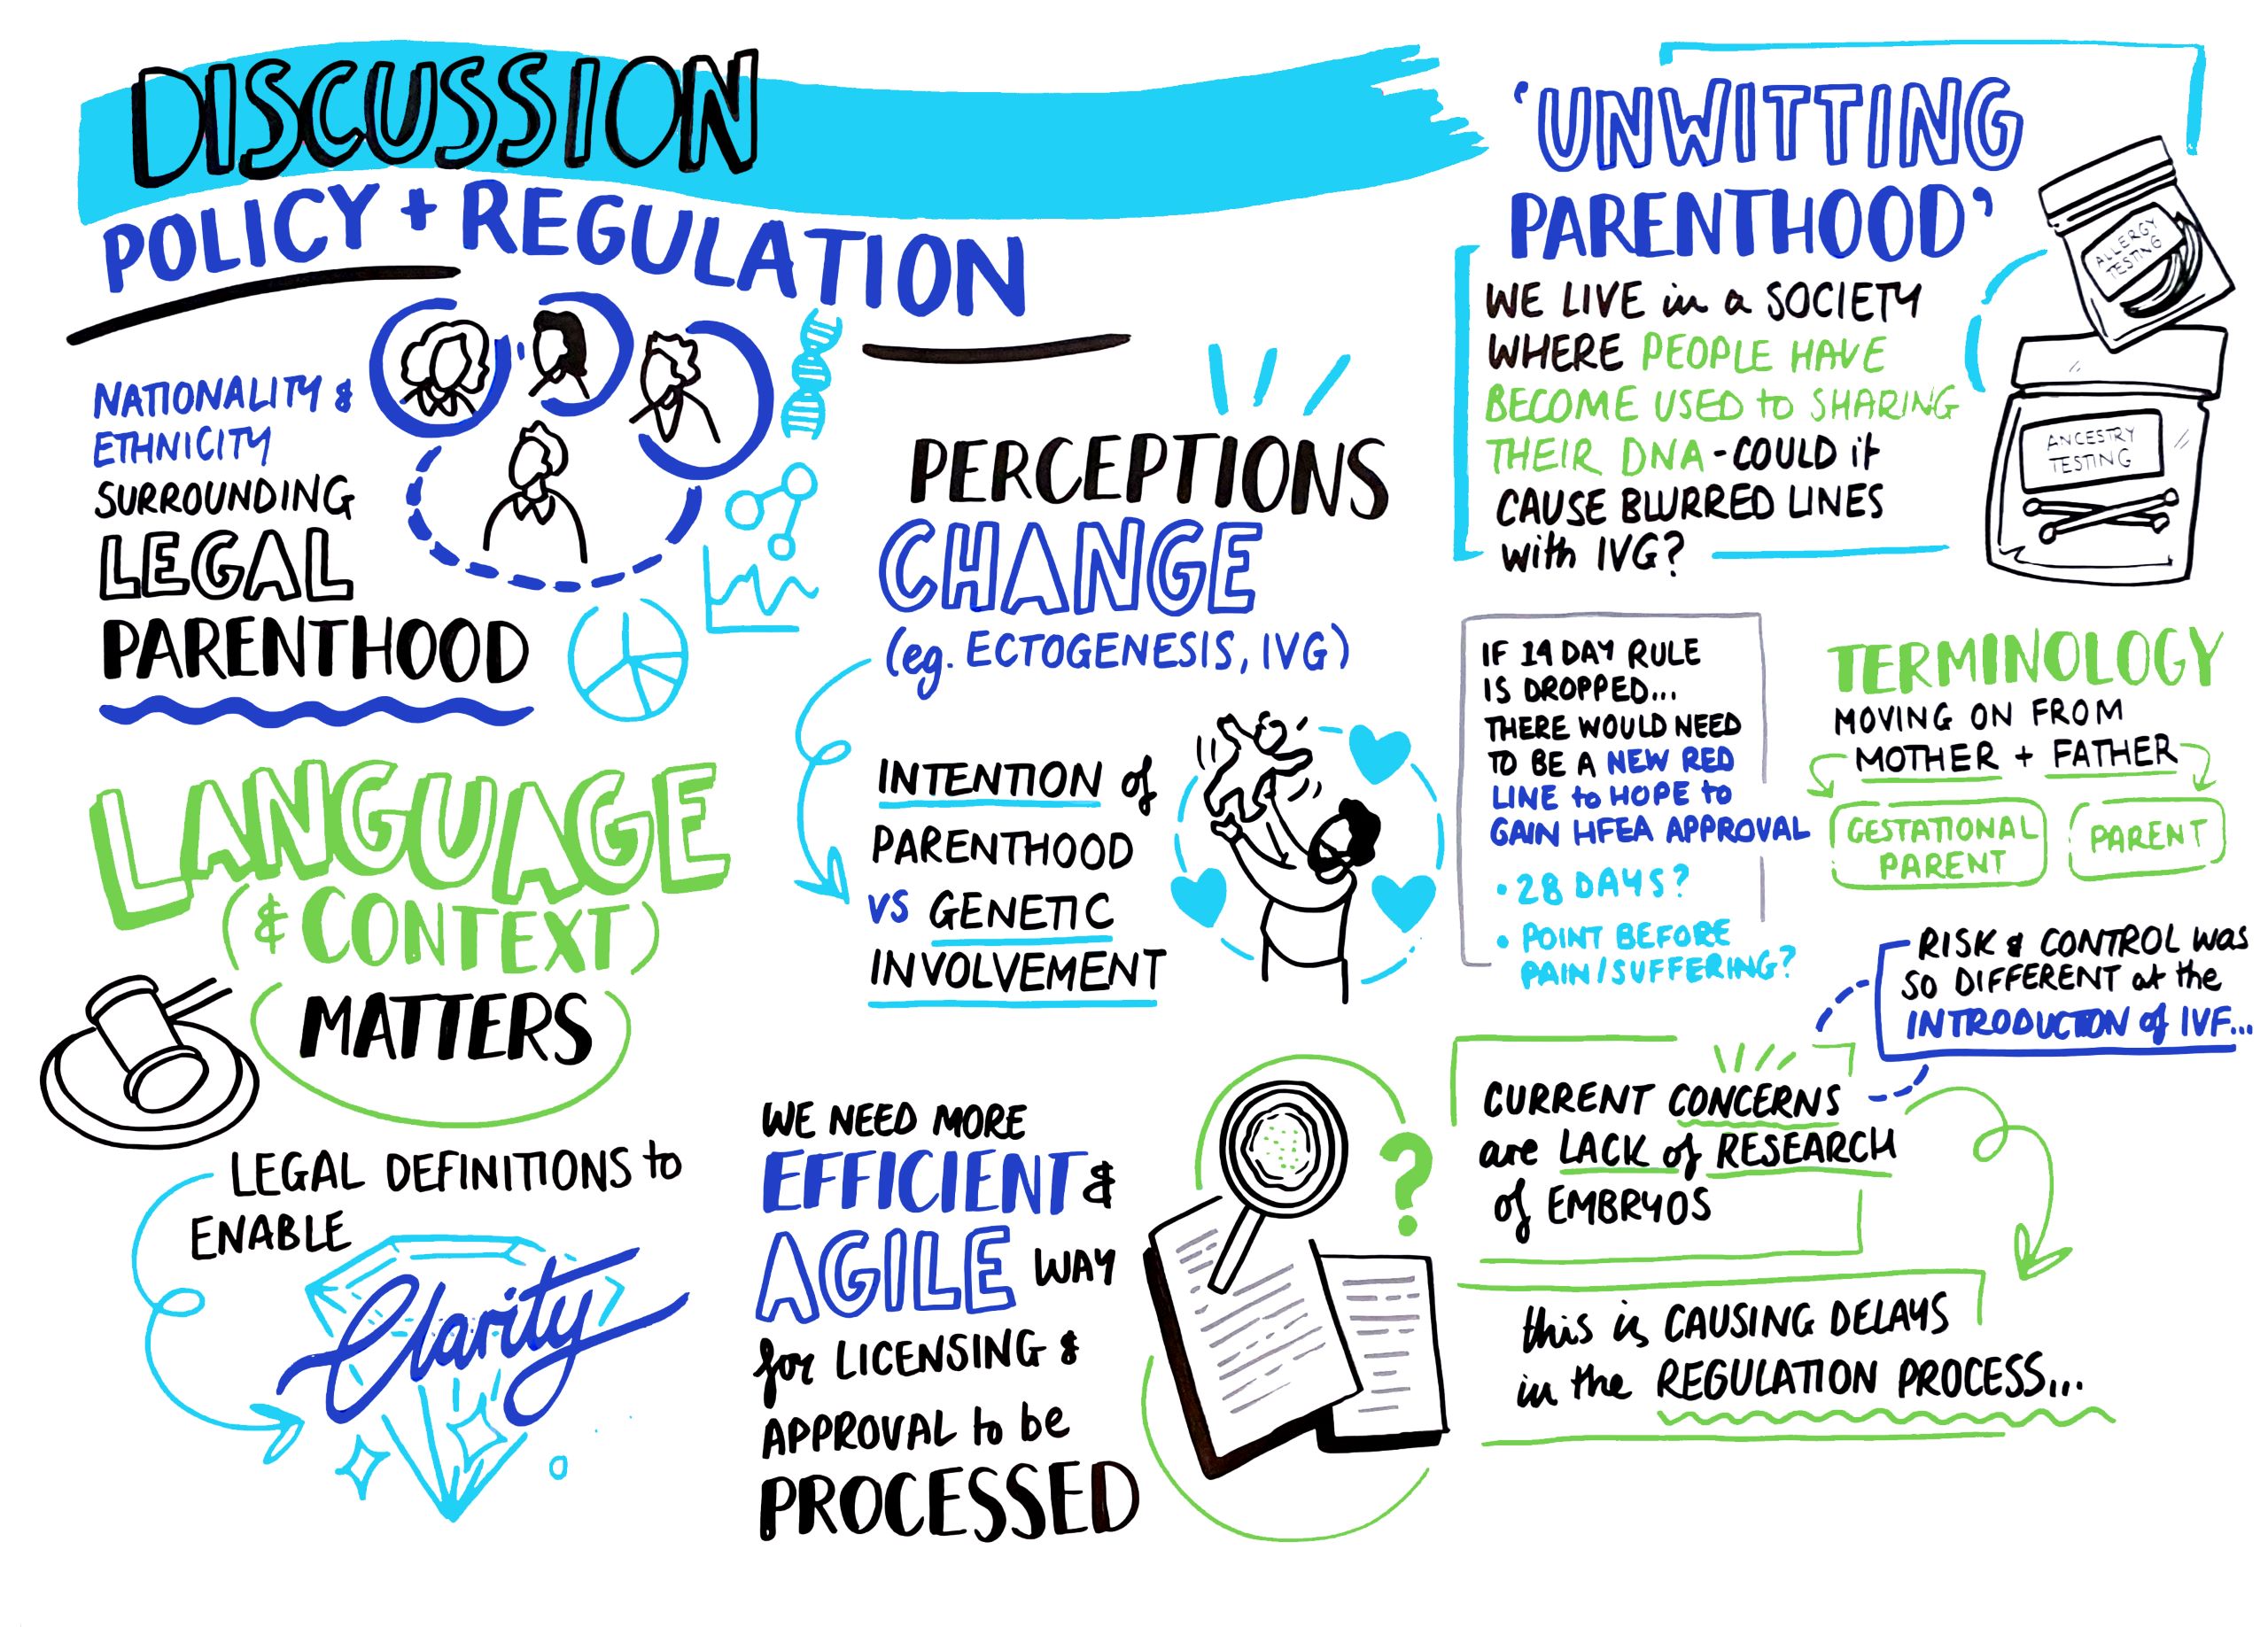 DISCUSSION
POLICY + REGULATION
NATIONALITY &
ETHNICITY
SURROUNDING
LEGAL
PARENTHOOD
LANGUAGE
(& CONTEXT)
MATTERS
LEGAL DEFINITIONS to
ENABLE
Clarity
PERCEPTIONS
CHANGE
(eg. ECTOGENESIS, IVG)
INTENTION of
PARENTHOOD
VS GENETIC
INVOLVEMENT
WE NEED MORE
EFFICIENT &
AGILE WAY
for LICENSING &
APPROVAL to be
PROCESSED
?
'UNWITTING
PARENTHOOD'
WE LIVE in a SOCIETY
WHERE PEOPLE HAVE
BECOME USED to SHARING
THEIR DNA - COULD it
CAUSE BLURRED LINES
with IVG?
ALLERGY
TESTING
ANCESTRY
TESTING
IF 14 DAY RULE
IS DROPPED...
THERE WOULD NEED
TO BE A NEW RED
LINE to HOPE to
GAIN HFEA APPROVAL
• 28 DAYS?
• POINT BEFORE
PAIN/SUFFERING?
TERMINOLOGY
MOVING ON FROM
MOTHER + FATHER
GESTATIONAL
PARENT
PARENT
RISK & CONTROL was
SO DIFFERENT at the
INTRODUCTION of IVF...
CURRENT CONCERNS
are LACK of RESEARCH
of EMBRYOS
this is CAUSING DELAYS
in the REGULATION PROCESS...